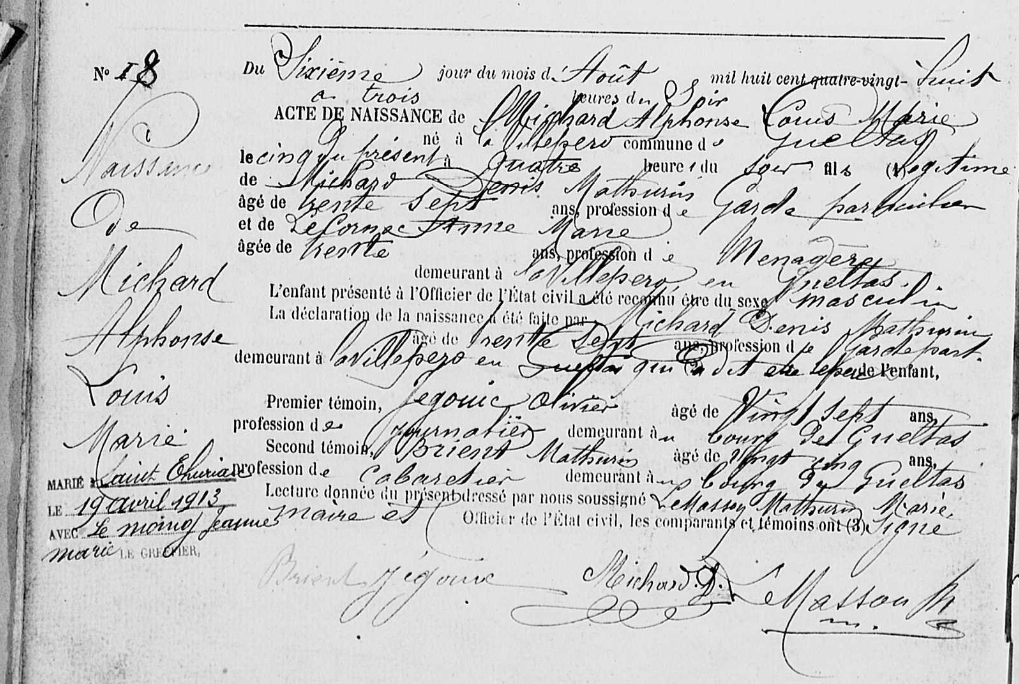 N° 18
Naissance
De
Michard
Alphonse
Louis
Marie
MARIÉ à Saint Thurian
LE 19 avril 1913
AVEC Le moing Jeanne
marie LE GREFFIER,
Du Sixième jour du mois d' Août mil huit cent quatre-vingt- huit
a trois heures du Soir
ACTE DE NAISSANCE de Michard Alphonse Louis Marie
né à la villepero commune de Gueltas
le cinq du présent à quatre heures du soir fils (1) legitime
de Michard Denis Mathurin
âgé de trente sept ans, profession de Garde particulier
et de Le Cornec Anne Marie
âgée de trente ans, profession de Menagère
demeurant à la villepero en Gueltas.
L'enfant présenté à l'Officier de l'État civil a été reconnu être du sexe masculin
La déclaration de la naissance a été faite par Michard Denis Mathurin
âgé de trente sept ans, profession de Garde part.
demeurant à la villepero en Gueltas qui a dit etre le pere de l'enfant,
Premier témoin, Jegouic Olivier âgé de Vingt sept ans,
profession de journalier demeurant à bourg de Gueltas
Second témoin, Brient Mathurin âgé de vingt cinq ans,
profession de cabaretier demeurant à bourg de Gueltas
Lecture donnée du présent dressé par nous soussigné Le Masson Mathurin Marie
maire et Officier de l'État civil, les comparants et témoins ont (3) Signé
Brient Jégouic Michard. D. Le Masson M